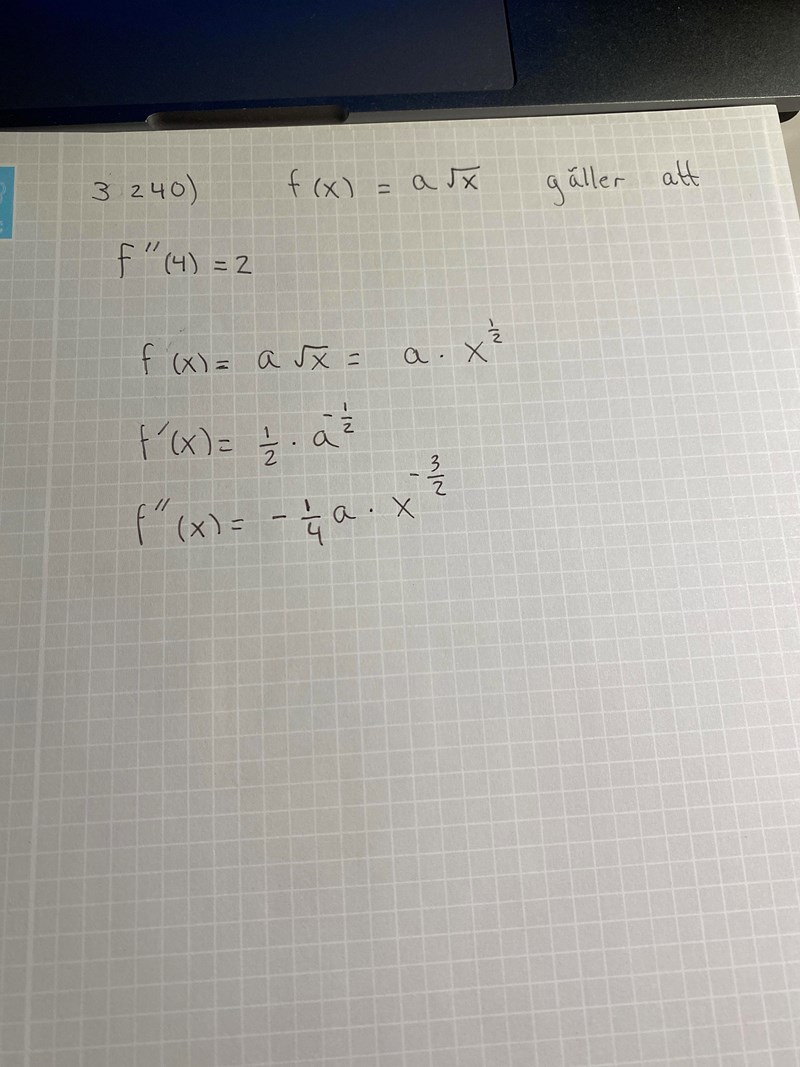 3 240) f(x) = a √x gäller att
f''(4) = 2
f(x) = a √x = a · x^{1/2}
f'(x) = 1/2 · a^{-1/2}
f''(x) = - 1/4 a · x^{-3/2}